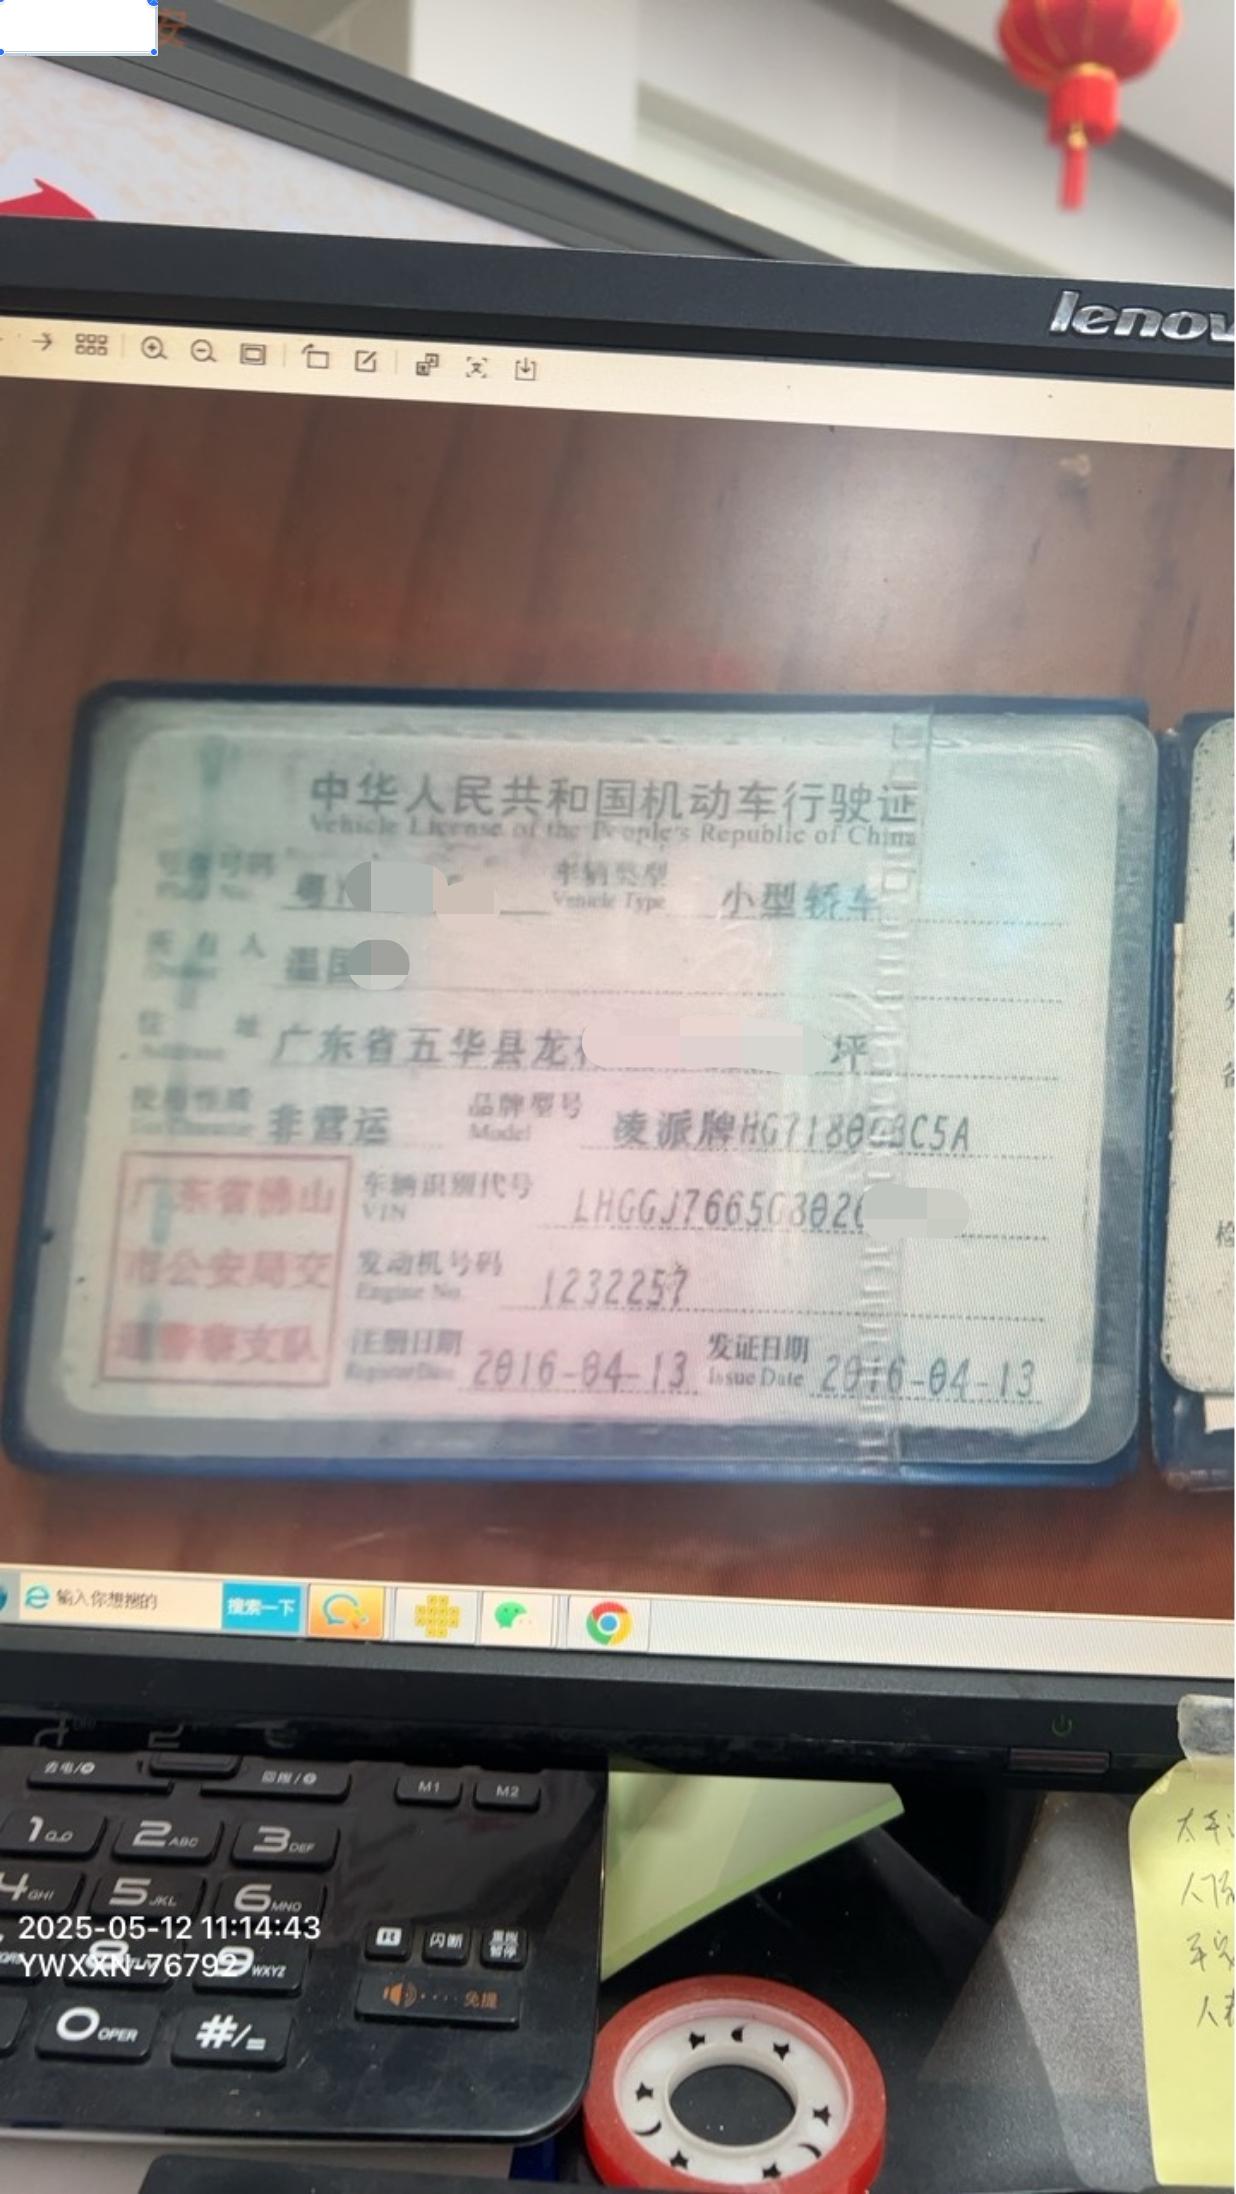 安
lenov
中华人民共和国机动车行驶证
Vehicle License of the People's Republic of China
号牌号码 粤 车辆类型 小型轿车
Plate No. Vehicle Type
所有人 温国
Owner
住址 广东省五华县龙 坪
Address
使用性质 非营运 品牌型号 凌派牌HG7180GBC5A
Use Character Model
广东省佛山
市公安局交
通警察支队
车辆识别代号 LHGGJ7665G802
VIN
发动机号码 1232257
Engine No.
注册日期 2016-04-13 发证日期 2016-04-13
Register Date Issue Date
检
输入你想搜的 搜索一下
M1 M2
1 2 ABC 3 DEF
4 GHI 5 JKL 6 MNO
8 9 WXYZ
闪断 重拨 暂停
免提
0 OPER #/=
2025-05-12 11:14:43
YWXXN-76792